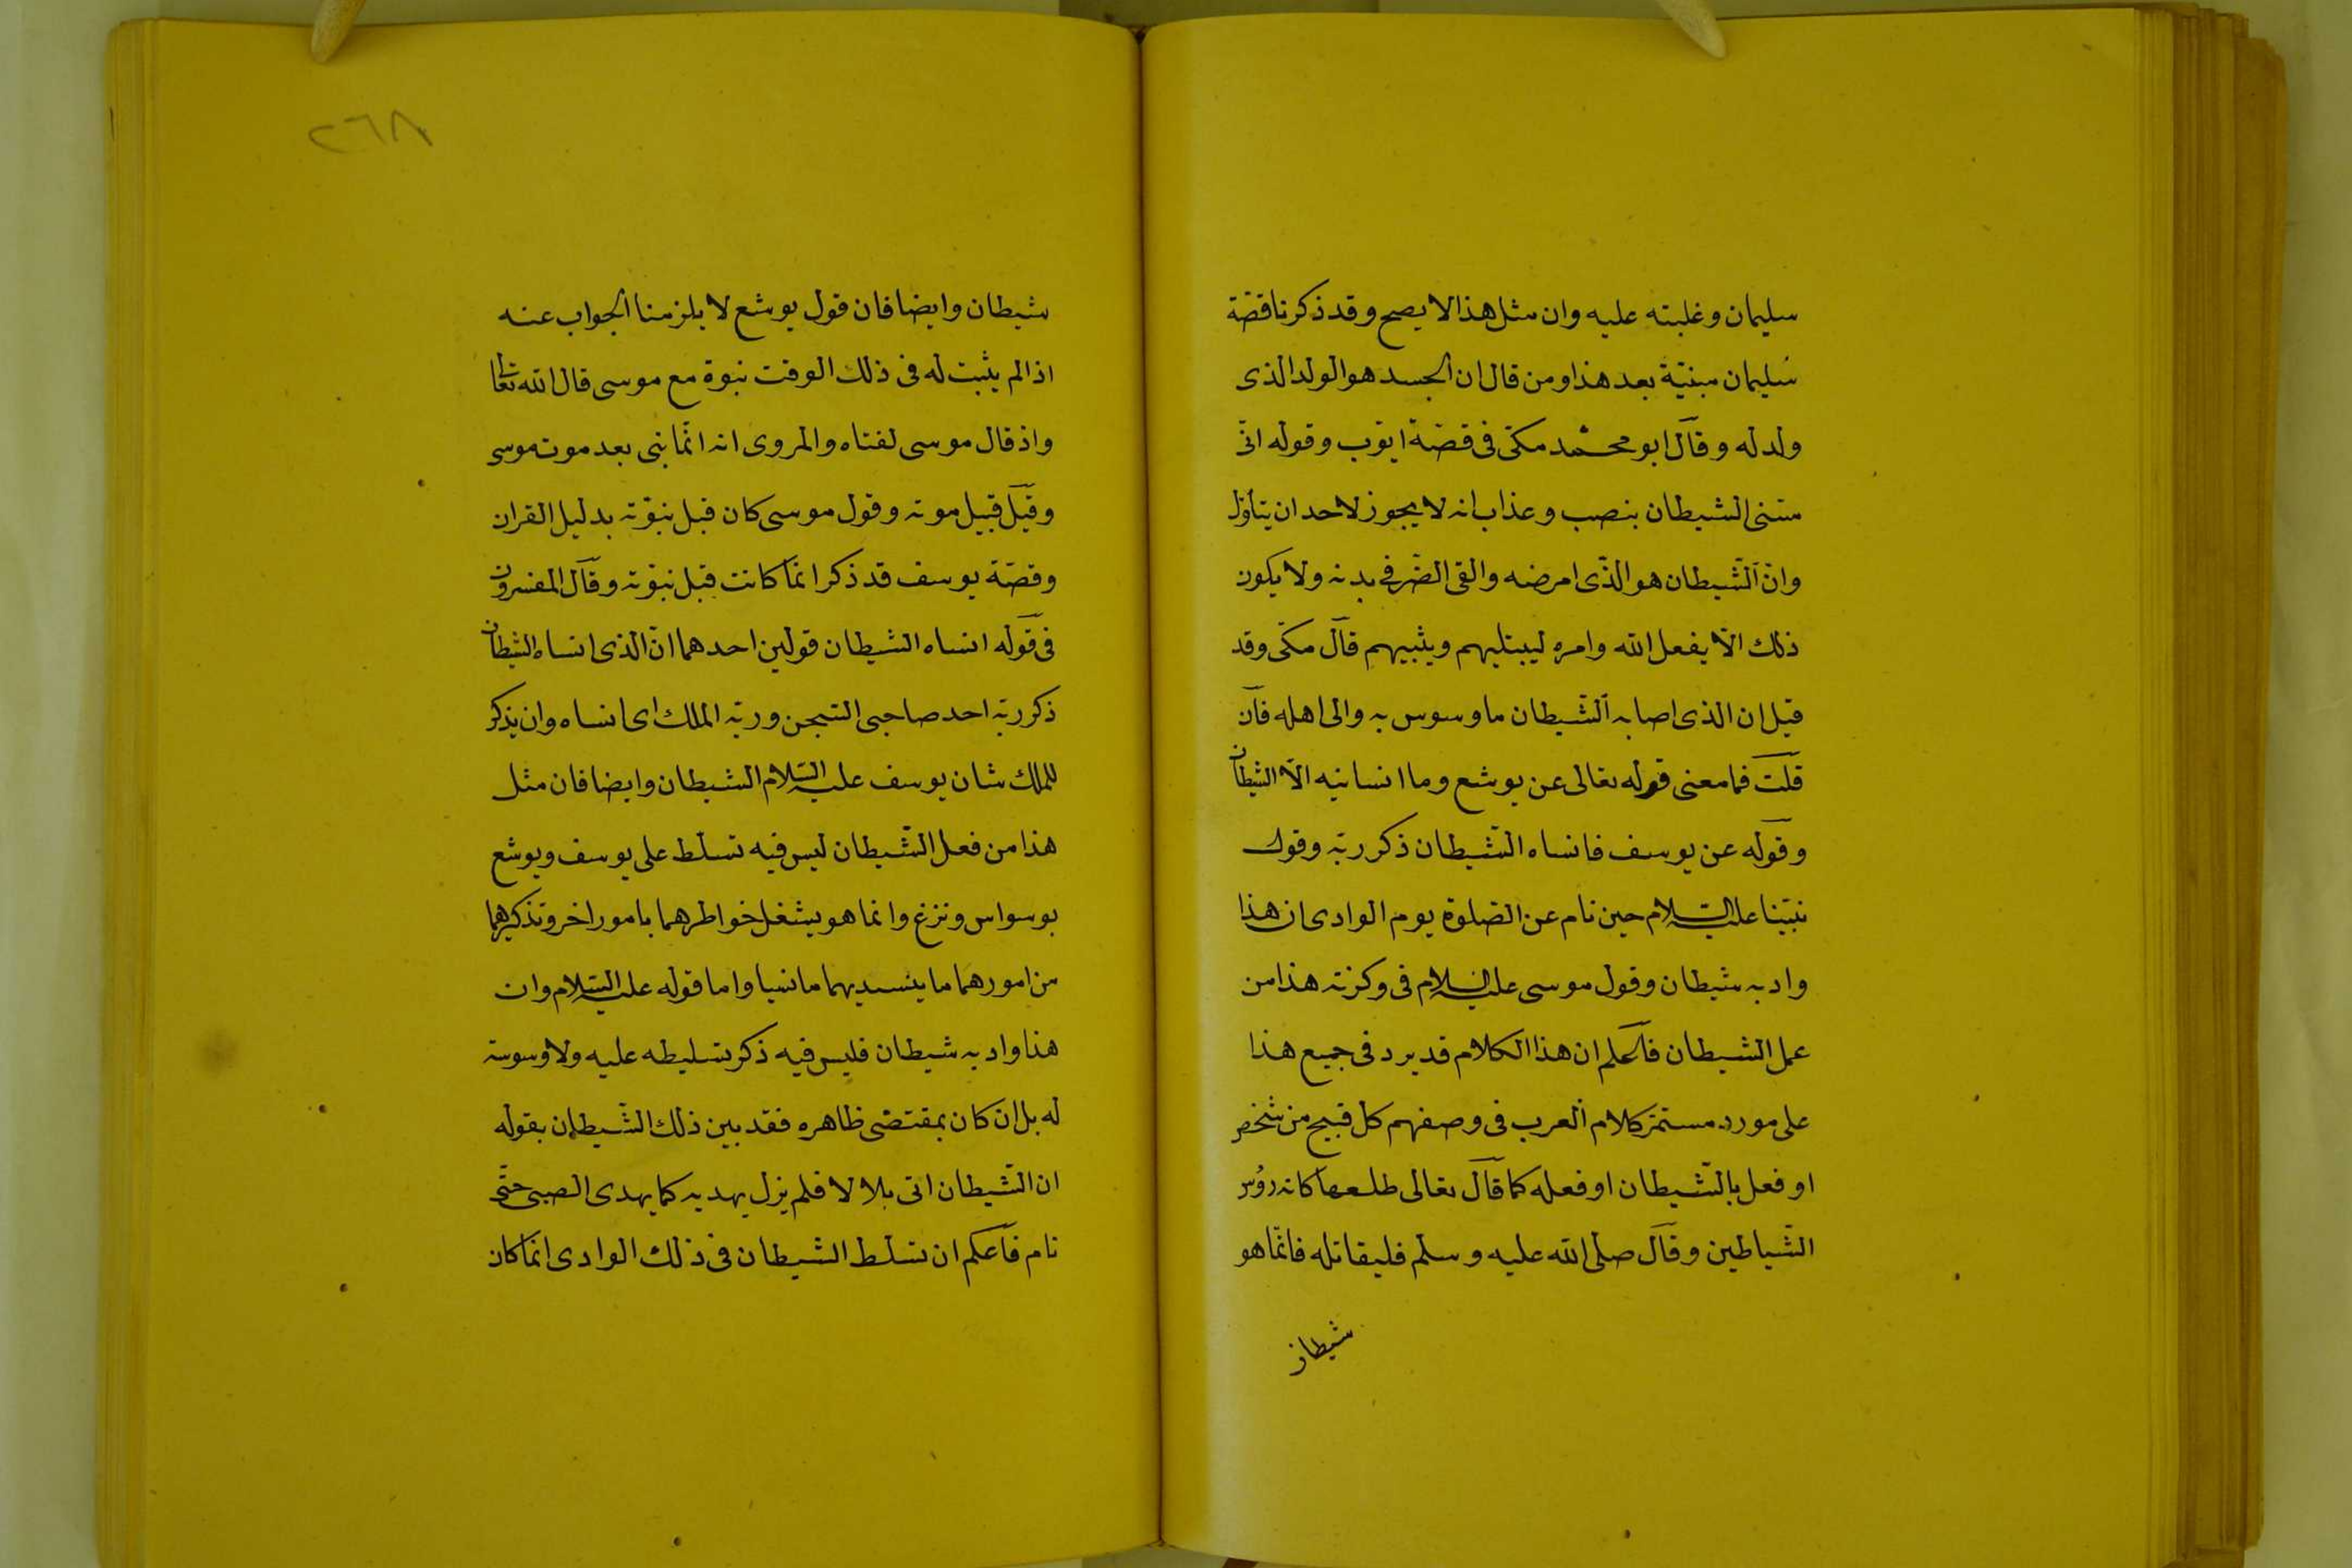 سليمان وغلبته عليه وان مثل هذا لا يصح وقد ذكرنا قصّة
سُليمان مبنيّة بعد هذا ومن قال ان الجسد هو الولد الذى
ولد له وقال ابو محمّد مكىّ فى قصّة ايّوب وقوله انّى
مسّنى الشيطان بنصب وعذاب انه لا يجوز لاحد ان يتأوّل
وانّ الشّيطان هو الذّى امرضه والقى الضّر فى بدنه ولا يكون
ذلك الّا بفعل الله وامره ليبتليهم ويثيبهم قال مكىّ وقد
قيل ان الذى اصابه الشّيطان ما وسوس به والى اهله فان
قلت فما معنى قوله تعالى عن يوشع وما انسانيه الّا الشيطان
وقوله عن يوسف فانساه الشّيطان ذكر ربّه وقول
نبيّنا عليه السّلام حين نام عن الصّلوة يوم الوادى ان هذا
واد به شيطان وقول موسى عليه السّلام فى وكزته هذا من
عمل الشيطان فاعلم ان هذا الكلام قد يرد فى جميع هذا
على مورد مستمرّ كلام العرب فى وصفهم كل قبيح من شخص
او فعل بالشّيطان او فعله كما قال تعالى طلعها كانه رؤس
الشّياطين وقال صلى الله عليه وسلم فليقاتله فانّما هو
شيطان
٢٦٨
شيطان وايضا فان قول يوشع لا يلزمنا الجواب عنه
اذ الم يثبت له فى ذلك الوقت نبوة مع موسى قال الله تعالى
واذ قال موسى لفتاه والمروى انه انّما نبى بعد موت موسى
وقيل قبيل موته وقول موسى كان قبل نبوّته بدليل القران
وقصّة يوسف قد ذكر انّما كانت قبل نبوّته وقال المفسرون
فى قوله انساه الشيطان قولين احدهما انّ الذى انساه الشيطان
ذكر ربّه احد صاحبى السّجن وربّه الملك اى انساه وان يذكر
للملك شان يوسف عليه السّلام الشيطان وايضا فان مثل
هذا من فعل الشّيطان ليس فيه تسلط على يوسف ويوشع
بوسواس ونزغ وانما هو يشغل خواطرهما بامور اخر وتذكيرهما
من امورهما ما ينسيهما ما نسيا واما قوله عليه السّلام وان
هذا واد به شيطان فليس فيه ذكر تسليطه عليه ولا وسوسته
له بل ان كان بمقتضى ظاهره فقد بين ذلك الشّيطان بقوله
ان الشّيطان اتى بلالا فلم يزل يهديه كما يهدى الصبى حتّى
نام فاعلم ان تسلط الشيطان فى ذلك الوادى انّما كان